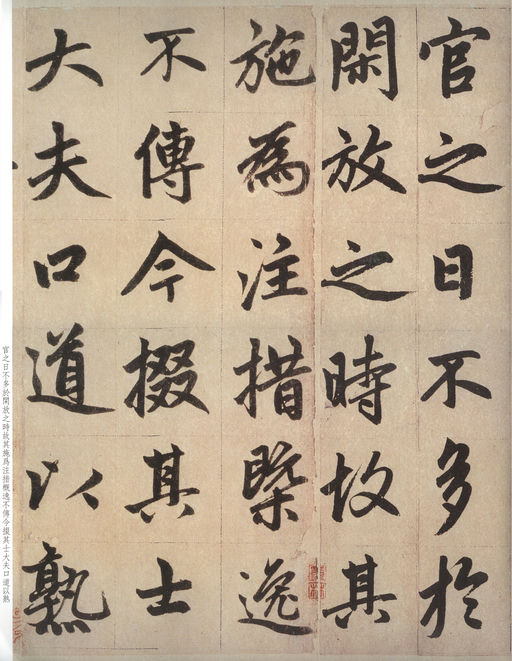 官之日不多於
閑放之時故其
施為注措槩逸
不傳今掇其士
大夫口道以熟
官之日不多於閑放之時故其施爲注措槪逸不傳今掇其士大夫口道以熟